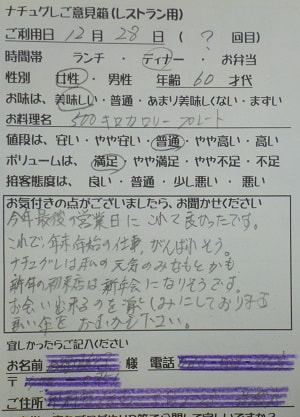 ナチュグレご意見箱(レストラン用)
ご利用日 12月 28日 ( ? 回目)
時間帯 ランチ ・ ディナー ・ お弁当
性別 女性 ・ 男性 年齢 60 才代
お味は、美味しい・普通・あまり美味しくない・まずい
お料理名 500キロカロリープレート
値段は、安い・やや安い・普通・やや高い・高い
ボリュームは、満足・やや満足・やや不足・不足
接客態度は、良い・普通・少し悪い・悪い
お気付きの点がございましたら、お聞かせください
今年最後の営業日に これて良かったです。
これで年末年始の仕事、がんばれそう。
ナチュグレは私の元気のみなもとかも
新年の初来店は新年会になりそうです。
お会い出来るのを楽しみにしております
良い年をおむかえ下さい。
宜しかったらご記入ください
お名前 様 電話
〒
ご住所